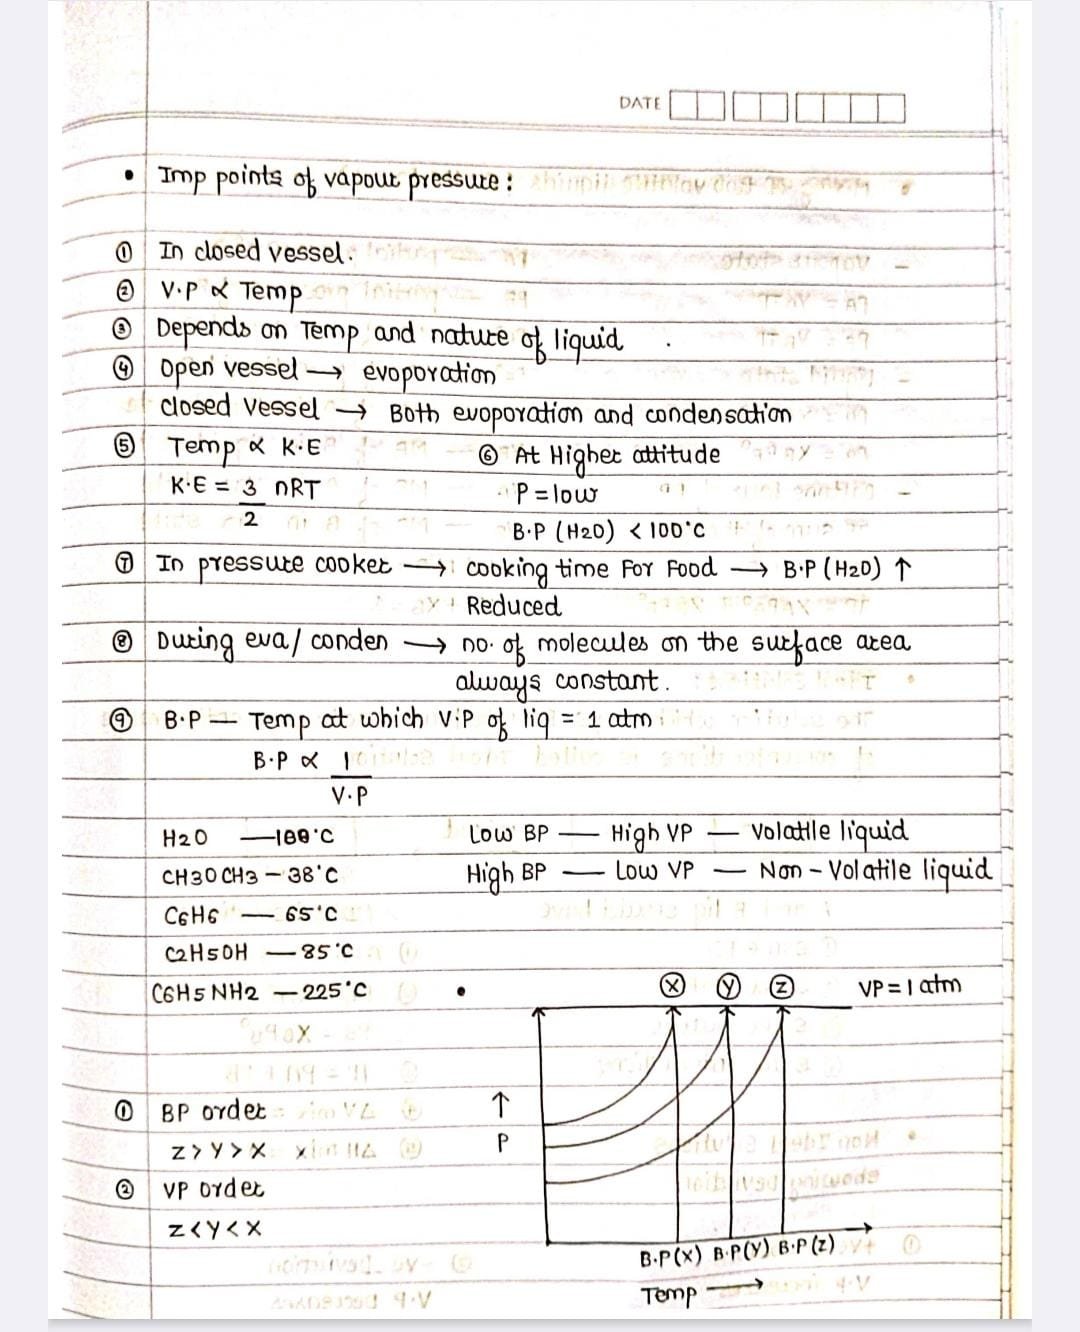 DATE
• Imp points of vapour pressure :
① In closed vessel.
② V.P ∝ Temp
③ Depends on Temp and nature of liquid
④ Open vessel → evoporation
closed vessel → Both evoporation and condensation
⑤ Temp ∝ K.E
K.E = 3/2 nRT
⑥ At Higher attitude
P = low
B.P (H2O) < 100°C
⑦ In pressure cooker → cooking time For Food → B.P (H2O) ↑
Reduced
⑧ During eva/conden → no. of molecules on the surface area
always constant.
⑨ B.P — Temp at which V.P of liq = 1 atm
B.P ∝ 1/V.P
H2O — 100°C
CH3OCH3 — 38°C
C6H6 — 65°C
C2H5OH — 85°C
C6H5NH2 — 225°C
Low BP — High VP — Volatile liquid
High BP — Low VP — Non - Volatile liquid
• Ⓧ Ⓨ Ⓩ VP = 1 atm
↑
P
B.P(X) B.P(Y) B.P(Z)
Temp →
① BP order
Z > Y > X
② VP order
Z < Y < X